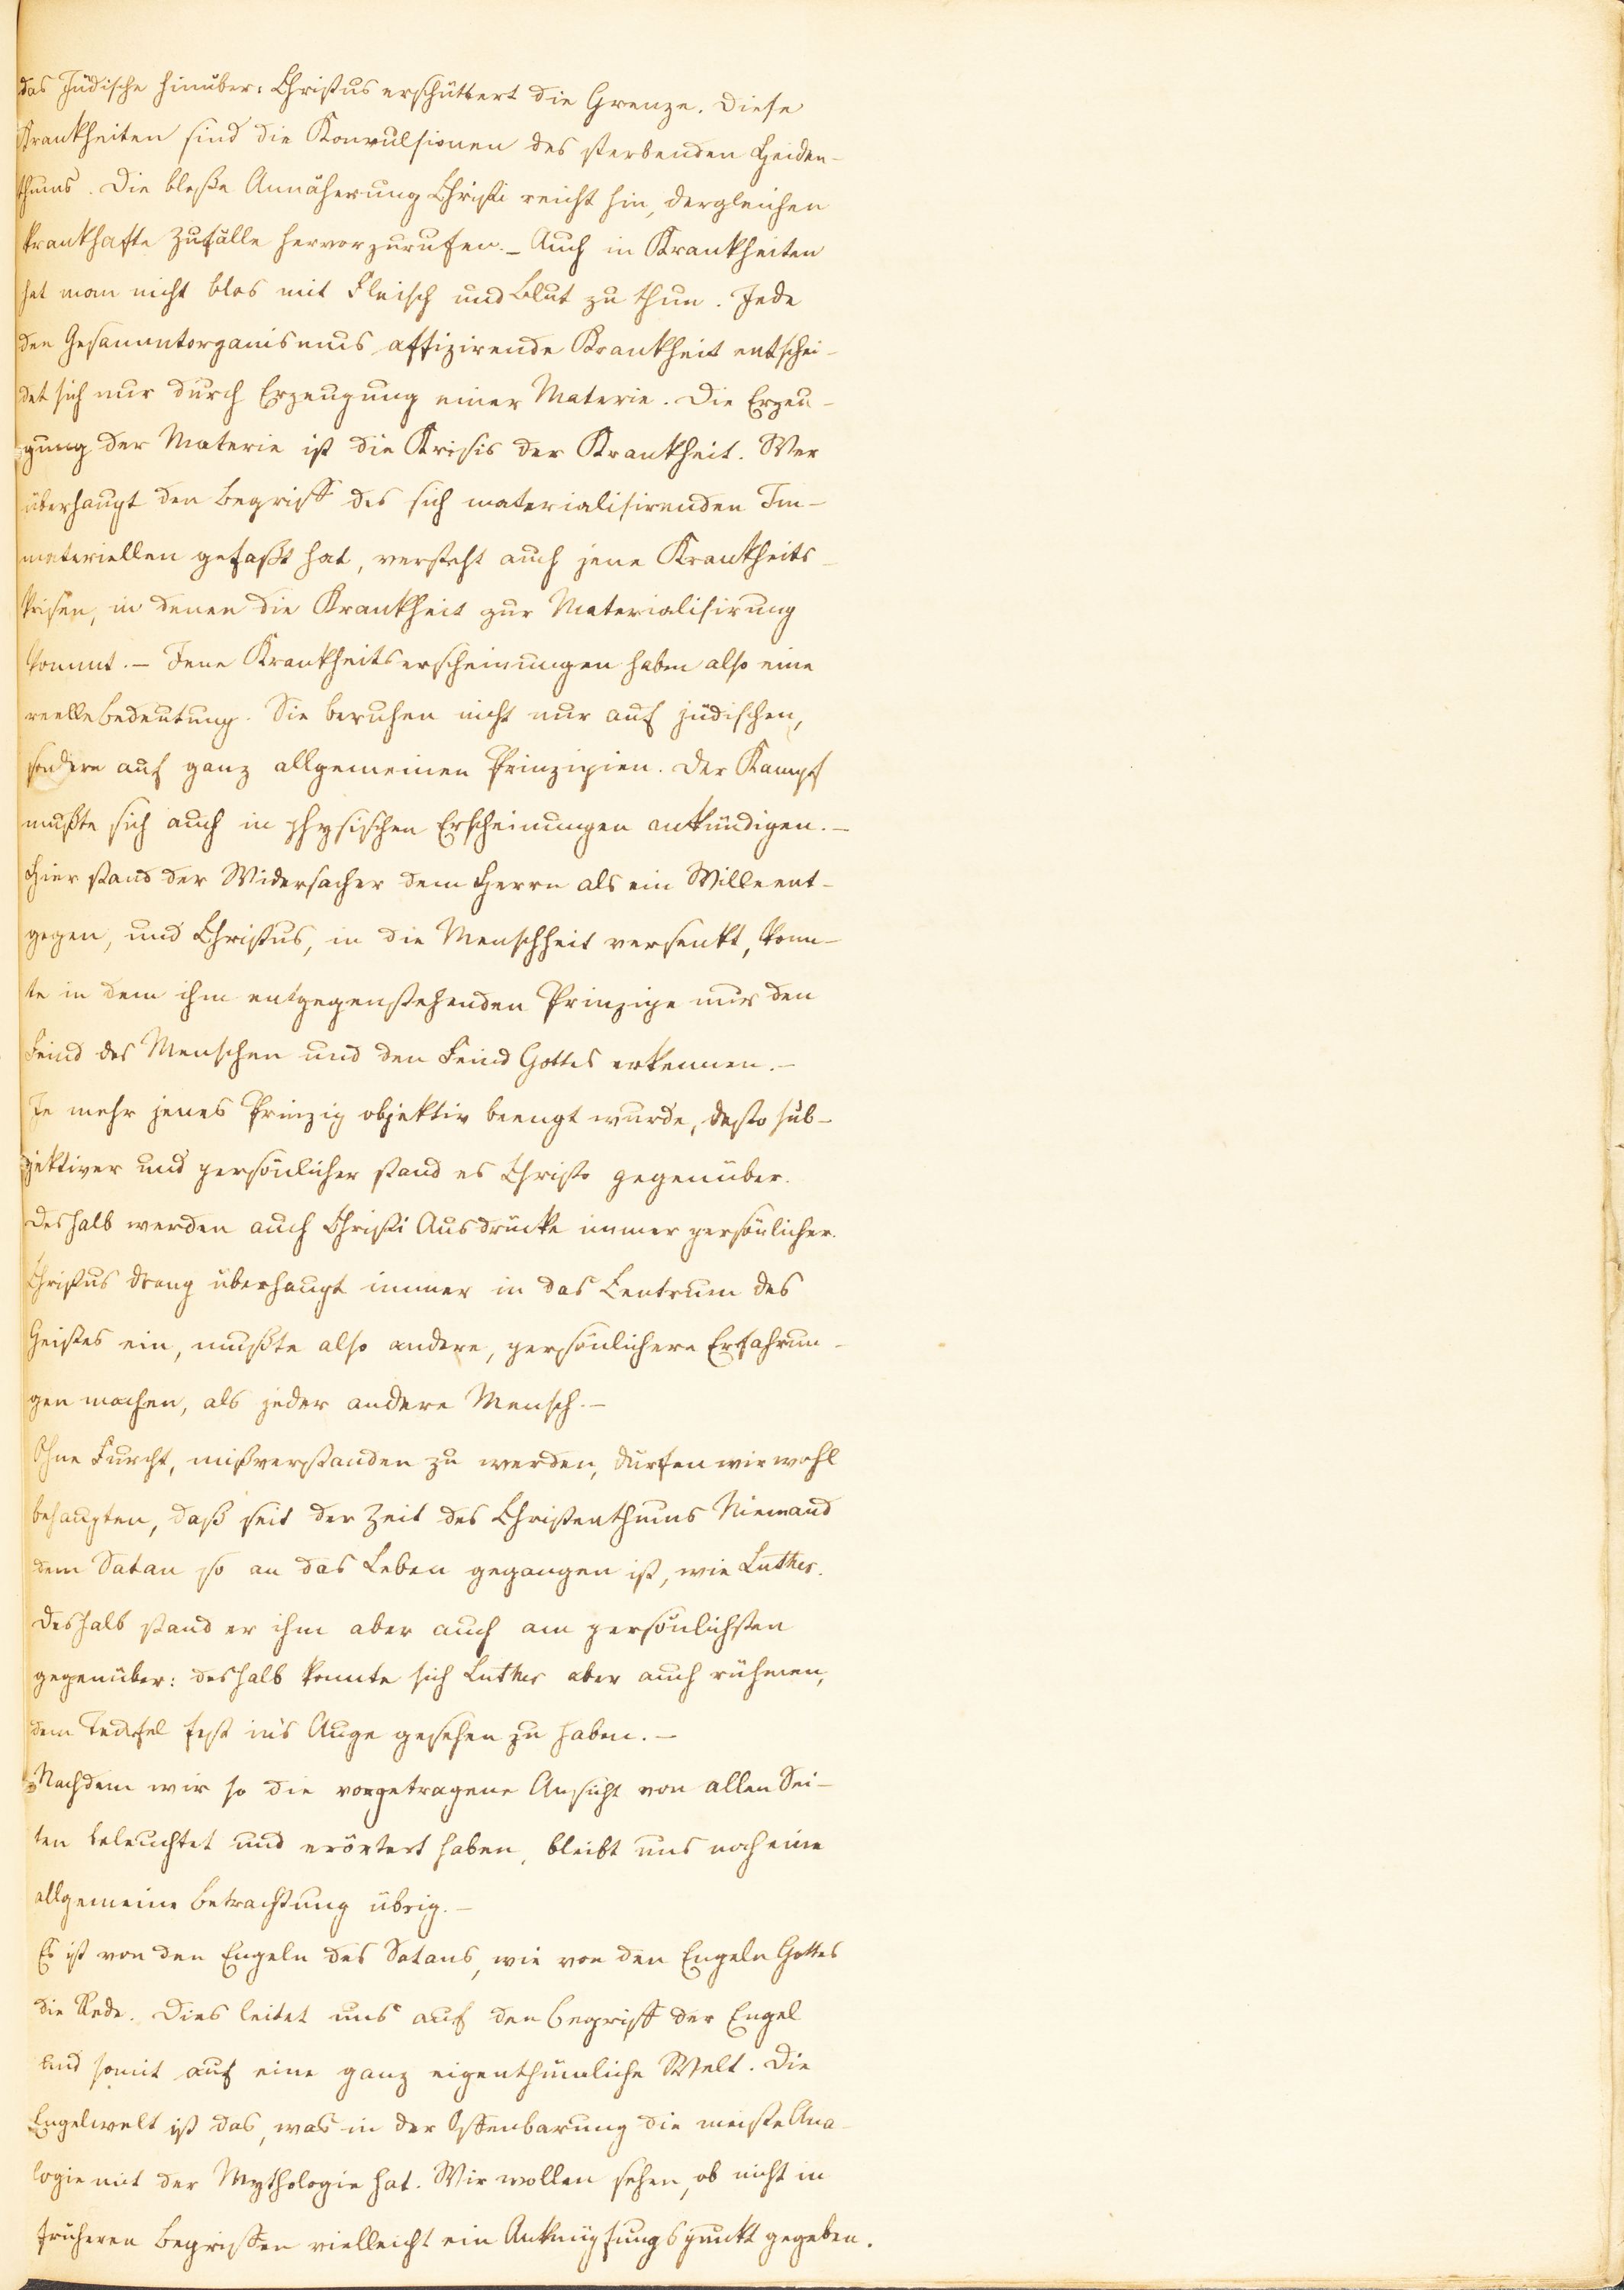 das Jüdische hinüber: Christus erschüttert die Grenze. Diese
Krankheiten sind die Konvulsionen des sterbenden Heiden-
thums. Die bloße Annäherung Christi reicht hin, dergleichen
krankhafte Zufälle hervorzurufen. – Auch in Krankheiten
hat man nicht blos mit Fleisch und Blut zu thun. Jede
den Gesammtorganismus affizirende Krankheit entschei-
det sich nur durch Erzeugung einer Materie. Die Erzeu-
gung der Materie ist die Krisis der Krankheit. Wer
überhaupt den Begriff des sich materialisirenden Im-
materiellen gefaßt hat, versteht auch jene Krankheits-
krisen, in denen die Krankheit zur Materialisirung
kommt. – Jene Krankheitserscheinungen haben also eine
reelle Bedeutung. Sie beruhen nicht nur auf jüdischen,
sondern auf ganz allgemeinen Prinzipien. Der Kampf
mußte sich auch in physischen Erscheinungen ankündigen. –
Hier stand der Widersacher dem Herrn als ein Wille ent-
gegen, und Christus, in die Menschheit versenkt, konn-
te in dem ihm entgegenstehenden Prinzipe nur den
Feind des Menschen und den Feind Gottes erkennen. –
Je mehr jenes Prinzip objektiv beengt wurde, desto sub-
jektiver und persönlicher stand es Christo gegenüber.
Deshalb werden auch Christi Ausdrücke immer persönlicher.
Christus drang überhaupt immer in das Centrum des
Geistes ein, mußte also andere, persönlichere Erfahrun-
gen machen, als jeder andere Mensch. –
Ohne Furcht, mißverstanden zu werden, dürfen wir wohl
behaupten, daß seit der Zeit des Christenthums Niemand
dem Satan so an das Leben gegangen ist, wie Luther.
Deshalb stand er ihm aber auch am persönlichsten
gegenüber: deshalb konnte sich Luther aber auch rühmen,
dem Teufel fest in's Auge gesehen zu haben. –
Nachdem wir so die vorgetragene Ansicht von allen Sei-
ten beleuchtet und erörtert haben, bleibt uns noch eine
allgemeine Betrachtung übrig. –
Es ist von den Engeln des Satans, wie von den Engeln Gottes
die Rede. Dies leitet uns auf den Begriff der Engel
und somit auf eine ganz eigenthümliche Welt. Die
Engelwelt ist das, was in der Offenbarung die meiste Ana-
logie mit der Mythologie hat. Wir wollen sehen, ob nicht in
früheren Begriffen vielleicht ein Anknüpfungspunkt gegeben.